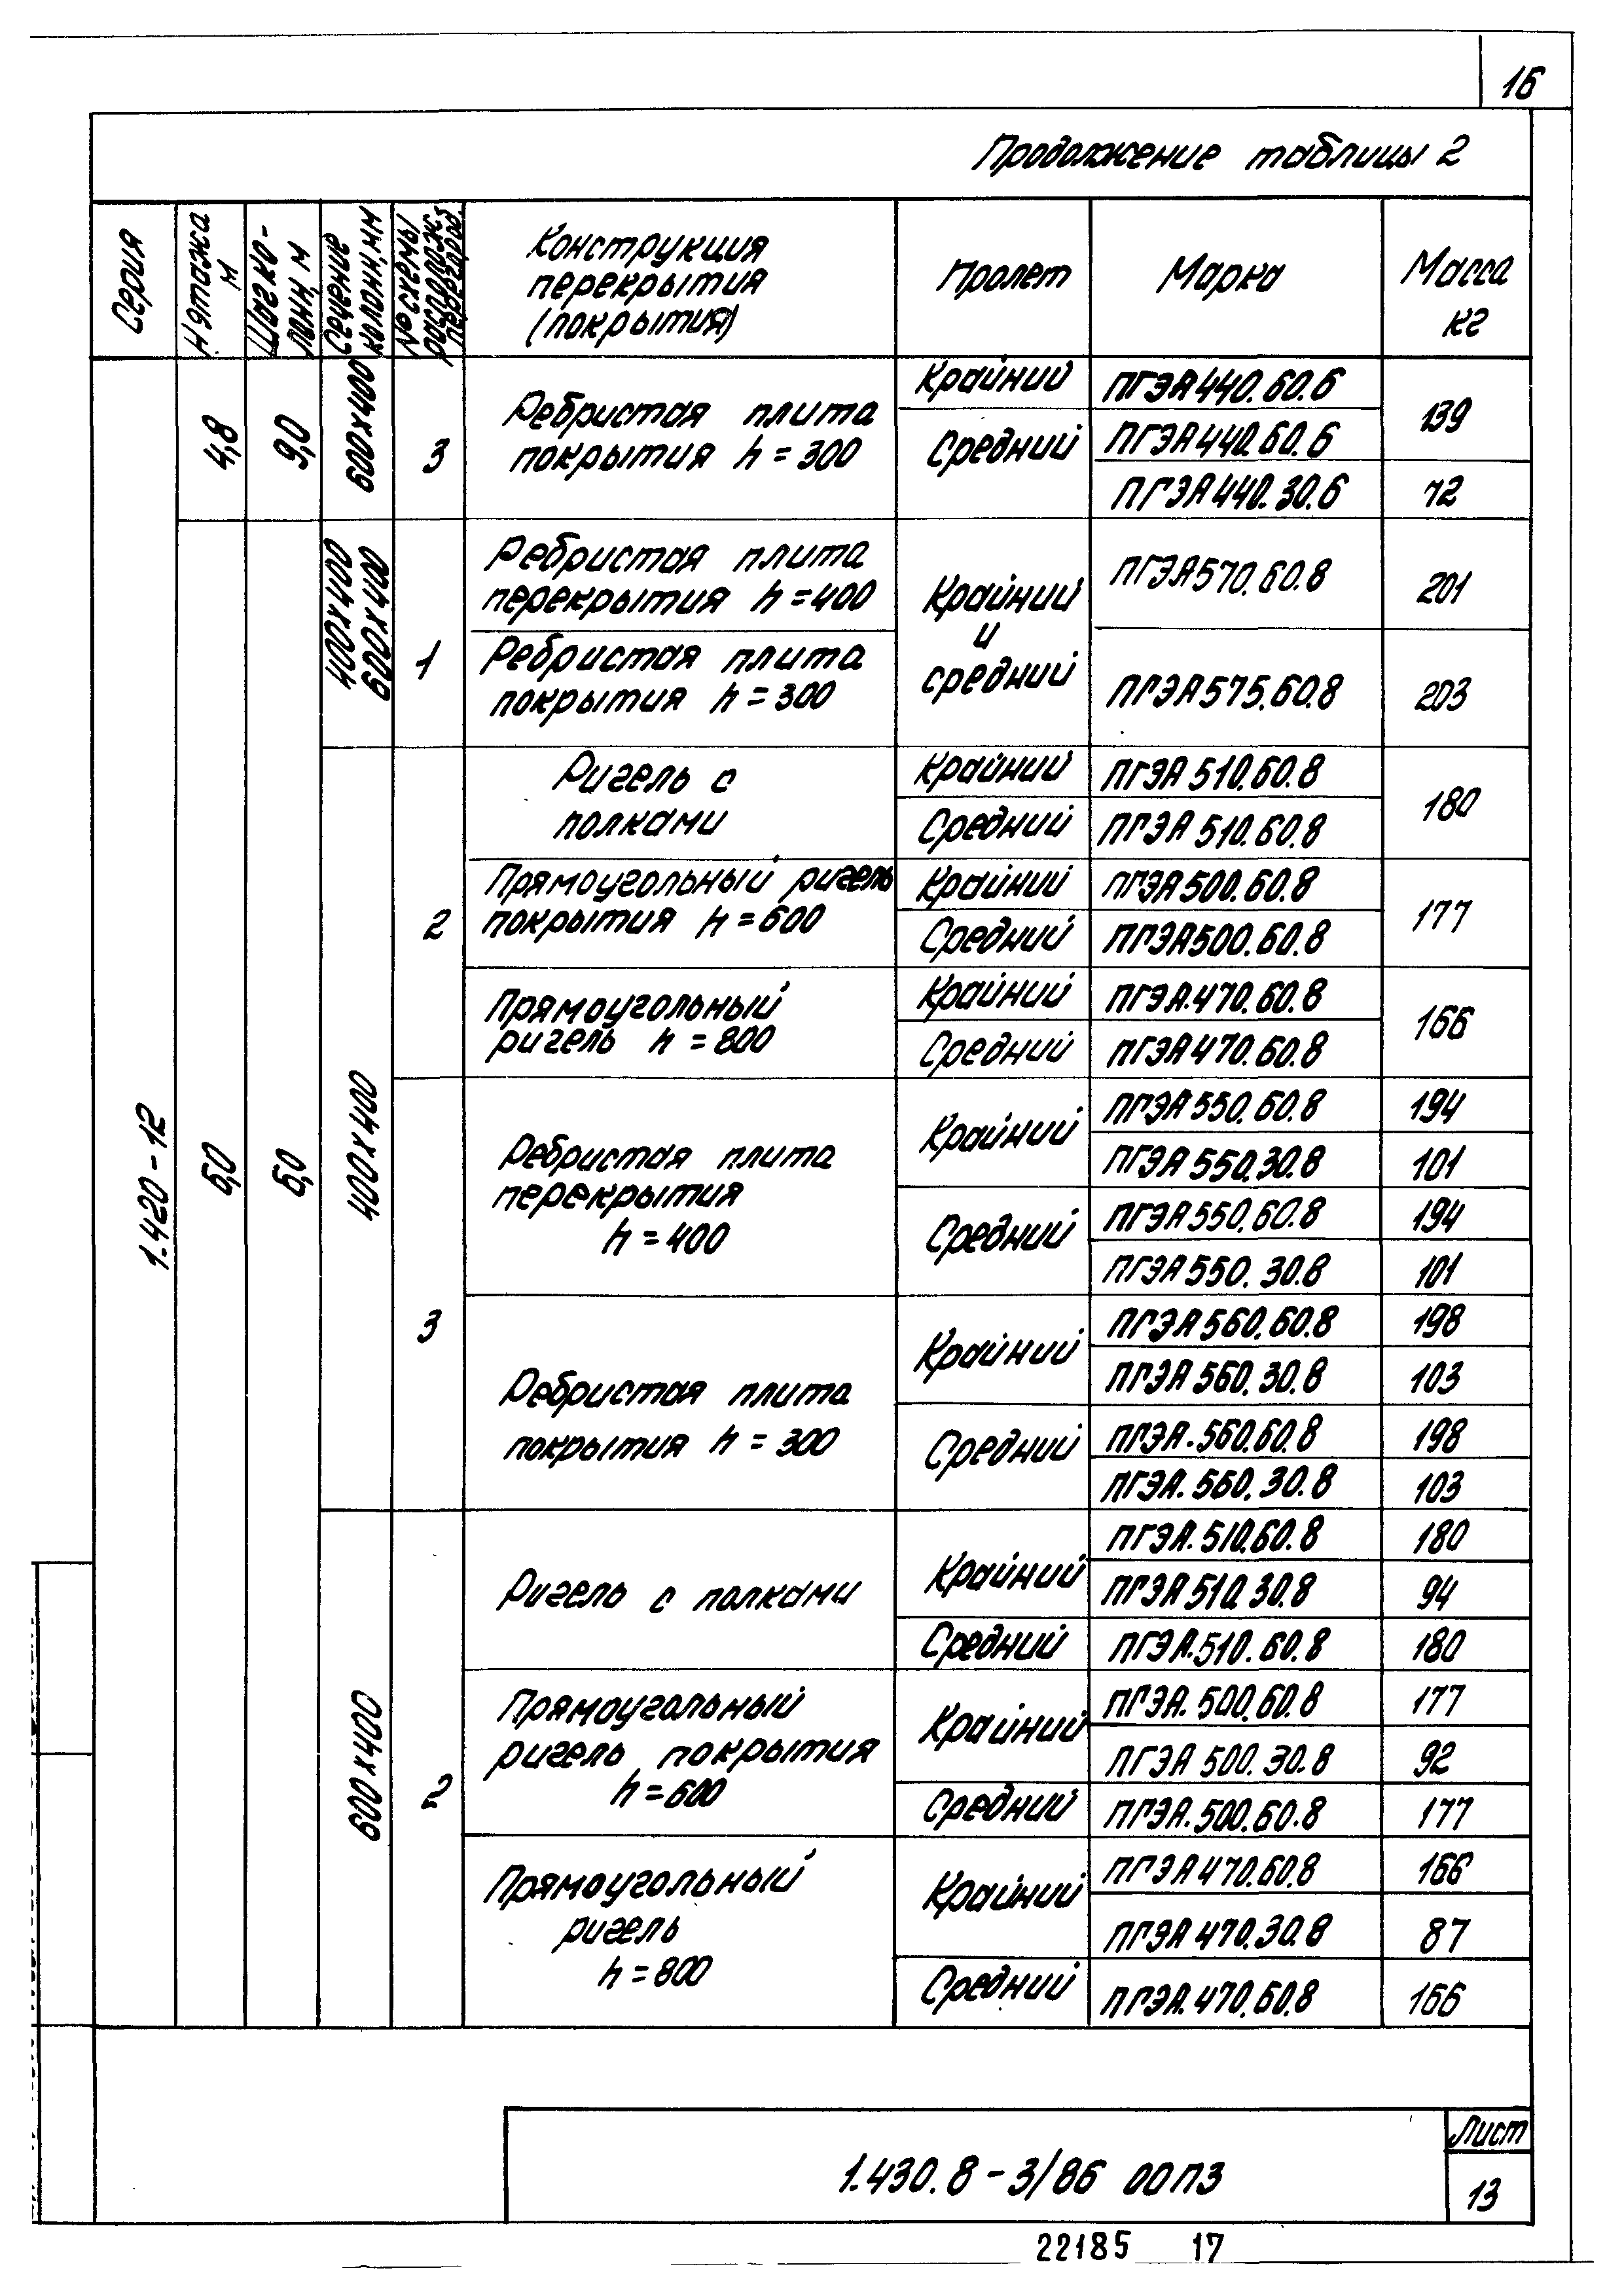 16
Продолжение таблицы 2
Серия
Н этажа м
Шаг ко-
лонн, м
Сечение
колонн, мм
№ схемы
располож.
перегород.
Конструкция
перекрытия
(покрытия)
Пролет
Марка
Масса
кг
4,8
9,0
600х400
3
Ребристая плита
покрытия h = 300
Крайний
ПГЭА440.60.6
139
Средний
ПГЭА440.60.6
ПГЭА440.30.6
72
400х400
600х400
1
Ребристая плита
перекрытия h = 400
Крайний
и
средний
ПГЭА570.60.8
201
Ребристая плита
покрытия h = 300
ПГЭА575.60.8
203
1.420-12
6,0
6,0
400х400
2
Ригель с
полками
Крайний
ПГЭА 510.60.8
180
Средний
ПГЭА 510.60.8
Прямоугольный ригель
покрытия h = 600
Крайний
ПГЭА500.60.8
177
Средний
ПГЭА500.60.8
Прямоугольный
ригель h = 800
Крайний
ПГЭА.470.60.8
166
Средний
ПГЭА470.60.8
3
Ребристая плита
перекрытия
h = 400
Крайний
ПГЭА 550.60.8
194
ПГЭА 550.30.8
101
Средний
ПГЭА 550.60.8
194
ПГЭА 550.30.8
101
Ребристая плита
покрытия h = 300
Крайний
ПГЭА 560.60.8
198
ПГЭА 560.30.8
103
Средний
ПГЭА.560.60.8
198
ПГЭА.560.30.8
103
600х400
2
Ригель с полками
Крайний
ПГЭА.510.60.8
180
ПГЭА 510.30.8
94
Средний
ПГЭА.510.60.8
180
Прямоугольный
ригель покрытия
h = 600
Крайний
ПГЭА.500.60.8
177
ПГЭА 500.30.8
92
Средний
ПГЭА.500.60.8
177
Прямоугольный
ригель
h = 800
Крайний
ПГЭА 470.60.8
166
ПГЭА 470.30.8
87
Средний
ПГЭА.470.60.8
166
1.430.8-3/86 00ПЗ
Лист
13
22185 17